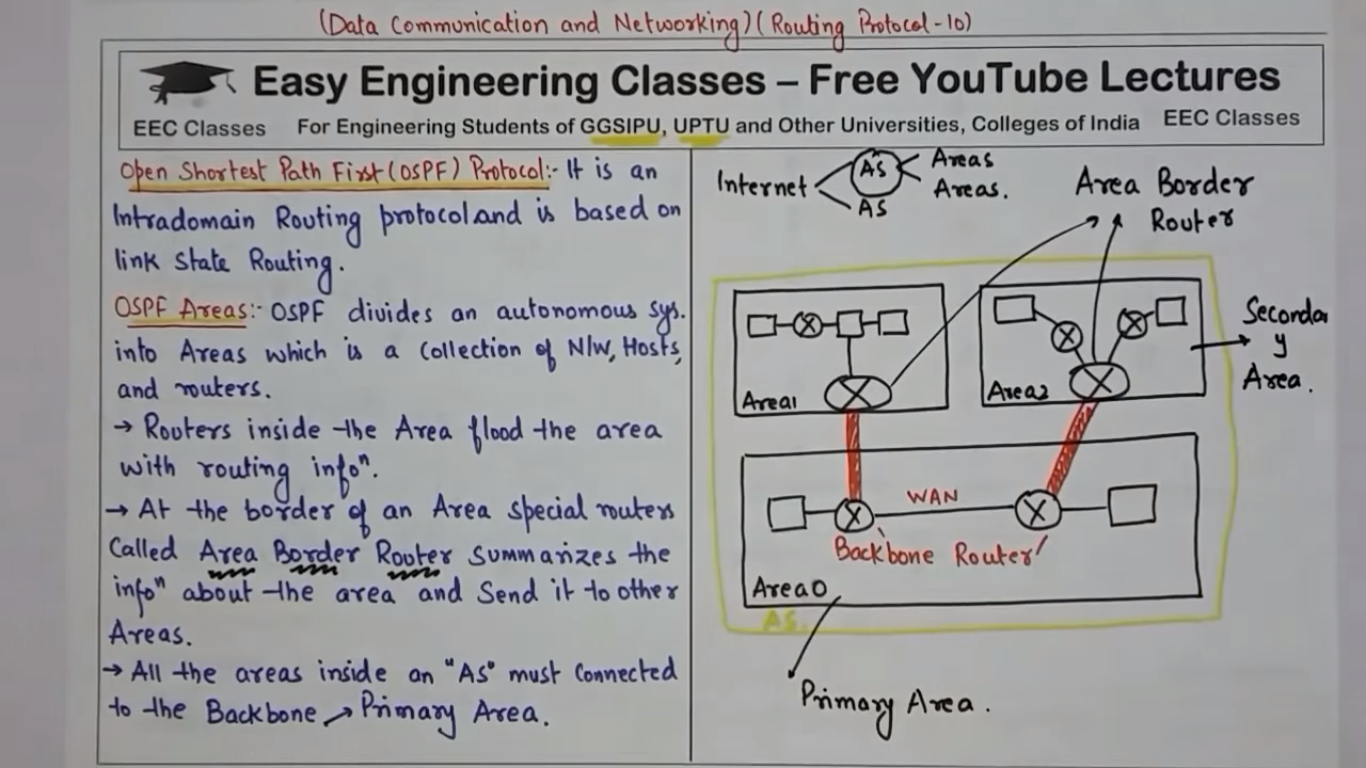 (Data Communication and Networking)(Routing Protocol-10)
Easy Engineering Classes – Free YouTube Lectures
EEC Classes For Engineering Students of GGSIPU, UPTU and Other Universities, Colleges of India EEC Classes
Open Shortest Path First (OSPF) Protocol:- It is an
Intradomain Routing protocol and is based on
link State Routing.
OSPF Areas:- OSPF divides an autonomous sys.
into Areas which is a Collection of N/W, Hosts,
and routers.
→ Routers inside the Area flood the area
with routing infoⁿ.
→ At the border of an Area special routers
Called Area Border Router Summarizes the
infoⁿ about the area and Send it to other
Areas.
→ All the areas inside an "AS" must Connected
to the Backbone → Primary Area.
Internet
AS
AS
Areas
Areas.
Area Border
Router
Area1
Area2
Secondar
y
Area.
WAN
Backbone Router
Area0
AS.
Primary Area.